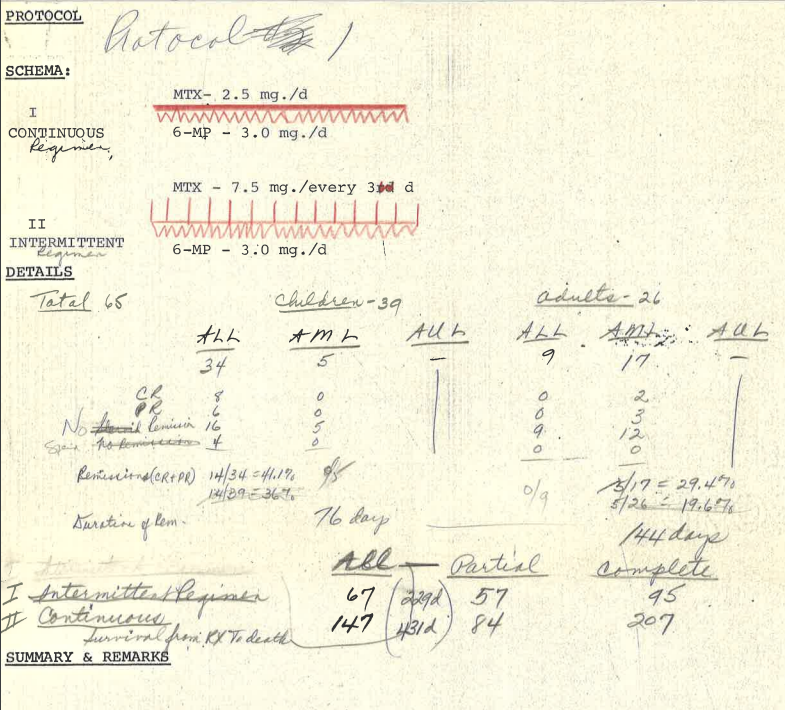 PROTOCOL
Protocol 1
SCHEMA:
MTX- 2.5 mg./d
I
CONTINUOUS
Regimen,
6-MP - 3.0 mg./d
MTX - 7.5 mg./every 3rd d
II
INTERMITTENT
Regimen
6-MP - 3.0 mg./d
DETAILS
Total 65 Children-39 adults-26
ALL AML AUL ALL AML AUL
34 5 - 9 17 -
CR 8 0 0 2
PR 6 0 0 3
No Remission 16 5 9 12
No Remission 4 0 0 0
Remissions(CR+PR) 14/34 = 41.1% 0/5 0/9 5/17 = 29.4%
14/39 = 36% 5/26 = 19.6%
Duration of Rem- 76 days 144 days
All — Partial Complete
I Intermittent Regimen 67 (229d) 57 95
II Continuous 147 (431d) 84 207
Survival from RX To death
SUMMARY & REMARKS